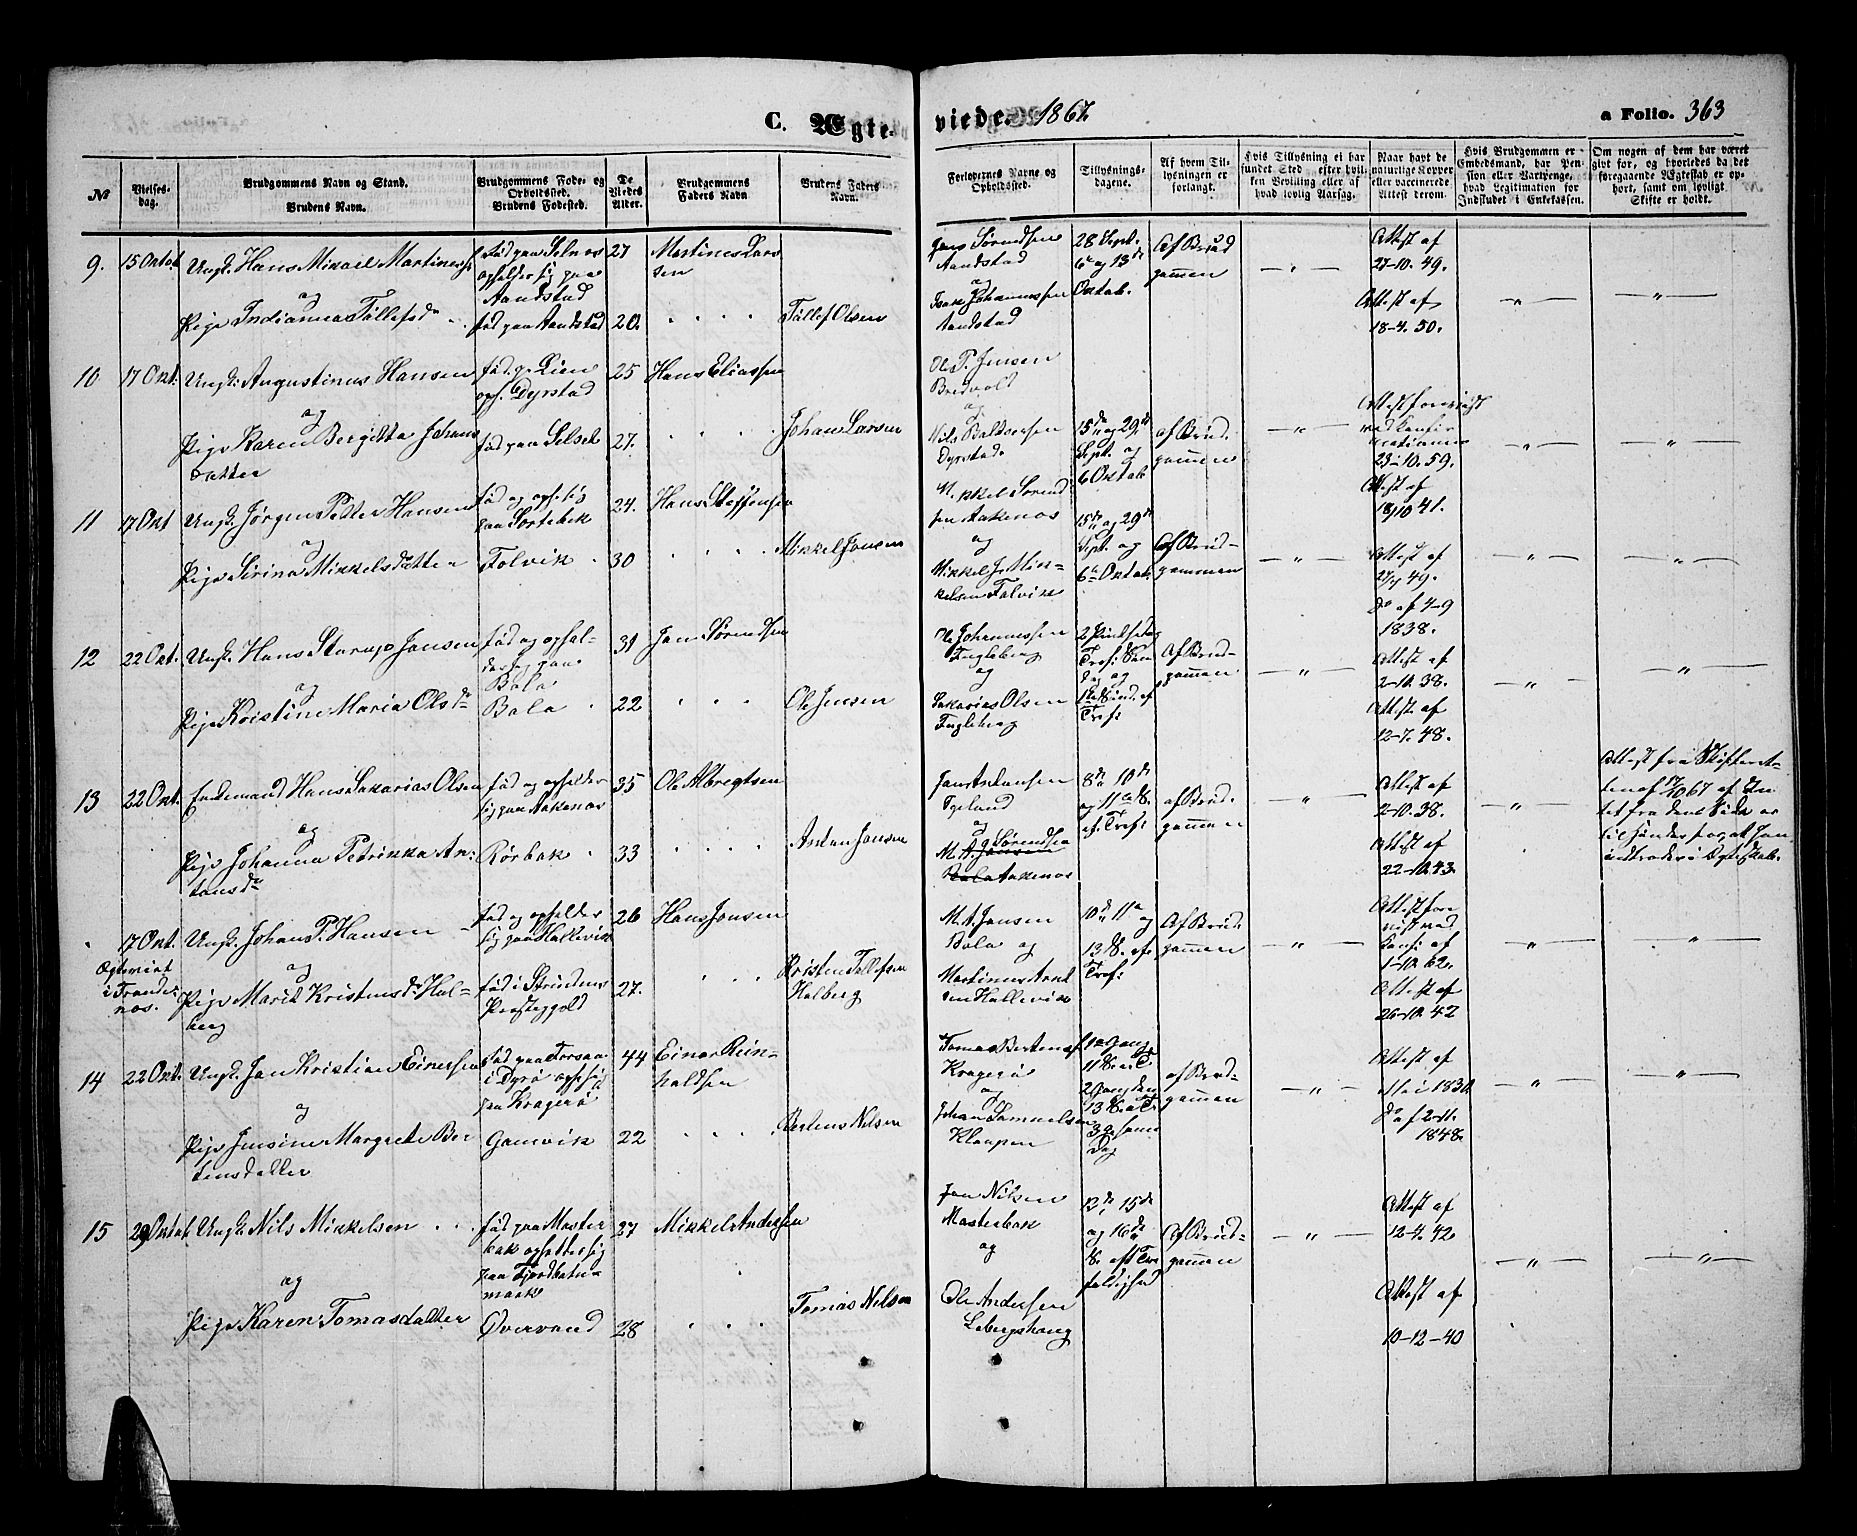 C. Ægte-
viede. 1867.
a Folio. 363
No
Vielses-
dag.
Brudgommens Navn og Stand.
Brudens Navn.
Brudgommens Føde- og
Opholdssted.
Brudens Fødested.
De
Viedes
Alder.
Brudgommens
Faders Navn
Brudens Faders
Navn.
Forlovernes Navne og
Opholdssted.
Tillysnings-
dagene.
Af hvem Til-
lysningen er
forlangt.
Hvis Tillysning ei har
fundet Sted efter hvil-
ken Bevilling eller af
hvad lovlig Aarsag.
Naar havt de
naturlige Kopper
eller vaccinerede
Attest derom.
Hvis Brudgommen er
Embedsmand, har Pen-
sion eller Vartpenge,
hvad Legitimation for
Indskudet i Enkekassen.
Om nogen af dem har været
givt før, og hvorledes da det
foregaaende Ægteskab er op-
hørt, samt om lovligt
Skifte er holdt.
9. 15 Oktob Ungk. Hans Mikael Martinessen
og
Pige Indianna Tollefsd.
fød paa Selnes
opholder sig paa
Aandstad
fød paa Aandstad
27
20.
Martines Lars
sen
Tollef Olsen
Jens Sørensen
Aandstad
og
Isak Johannessen
Aandstad
28 Sept.
6te og 13de
Oktob.
Af Brud
gommen
Attest af
27-10. 49.
Attest af
18-4. 50.
10 17 Okt. Ungk: Augustinus Hansen
og
Pige Karen Bergitta Johans
datter
fød p. Lien
oph. Dyrstad
fød paa Selset
25
27.
Hans Eliassen
Johan Larsen
Ole P. Jensen
Bredvold
og
Nils Baltsersen
Dyrstad
15de og 29de
Sept. og
6 Oktob
af Brud-
gommen
Attest forevist
ved Confir
mationen
23-10. 59.
Attest af
18/10 41.
11 17 Okt Ungk. Jørgen Petter Hansen
og
Pige Sirina Mikkelsdatter
fød og oph. sig
paa Sørtebek
Folvik
24.
30
Hans Steffensen
Mikkel Jonsen
Mikkel Sørend
sen Aakenes
og
Mikkel J. Mik-
kelsen Folvik
15de og 29de
Sept. og
6te Oktob.
Af Brud-
gommen
Attest af
27/9 49.
Do af 4-9
1838.
12 22 Okt. Ungk. Hans Storup Jensen
og
Pige Kristine Maria Olsdr
fød og ophol-
der sig paa
Bala
Bala
31
22
Jens Sørendsen
Ole Jensen
Ole Johannessen
Fugleberg
og
Sakarias Olsen
Fugleberg
Af Brud-
gommen
Attest af
2-10. 38.
Attest af
12-7. 48.
13 22 Okt. Enkemand Hans Sakarias Olsen
og
Pige Johanna Petrikka An-
tonsdr
fød og opholder
sig paa Aakenes
Rørbak
35
33
Ole Albregtsen
Anton Jensen
og
M. A. Jensen Sørendsen
Bala Aakenes
8de 10de
og 11te S.
ef. Tref:
af Brud-
gommen
Attest af
2-10. 38.
Attest af
22-10. 43.
Attest fra Skifteret-
ten af 17/10 67 af In-
tet fra dens Side er
til Hinder for at han
indtræder i Ægteskab.
17 Okt.
Ægteviet
i Trande-
nes.
Ungk. Johan P. Hansen
og
Pige Marit Kristensdr Hal-
berg
fød og opholder
sig paa Hallevik
fød i Strindens
Præstegjeld
26
27.
Hans Jensen
Kristen Tollefsen
Halberg
M. A. Jensen
Bala og
Martinus Arnt
sen Hallevik
10de 11te og
13 S. ef.
Tref:
Af Brud-
gommen
Attest fore
vist ved
Conf: af
1-10. 62.
Attest af
26-10. 42
14 22 Okt. Ungk. Jan Kristian Einersen
og
Pige Jensine Margrete Ber
tensdatter
fød paa Forsaa
i Dyrø oph. sig
paa Kragerø
Gamvik
44
22
Einer Rein-
holdsen
Bertens Nilsen
Tomas Bertensen
Kragerø
og
Johan Samuelsen
Klaapen
1te Gang
11 S. e. T.
2 Gang den
13 S. e. T.
3 G. samme
Dag
af Brud-
gommen
Attest af
Mai 1830.
Do af 2-11.
1848.
15 29 Oktob Ungk: Nils Mikkelsen
og
Pige Karen Tomasdatter
fød paa Master
bak opsetter sig
paa Fjordbotn-
mark
Øvervand
27
28
Mikkel Andersen
Tomas Nilsen
Jan Nilsen
Masterbak
og
Ole Andersen
Lebergshaug
13de 15de
og 16de
S. eft. Tre
foldighed
Af Brud-
gommen
Attest af
12-4. 42.
Attest af
10-12-40